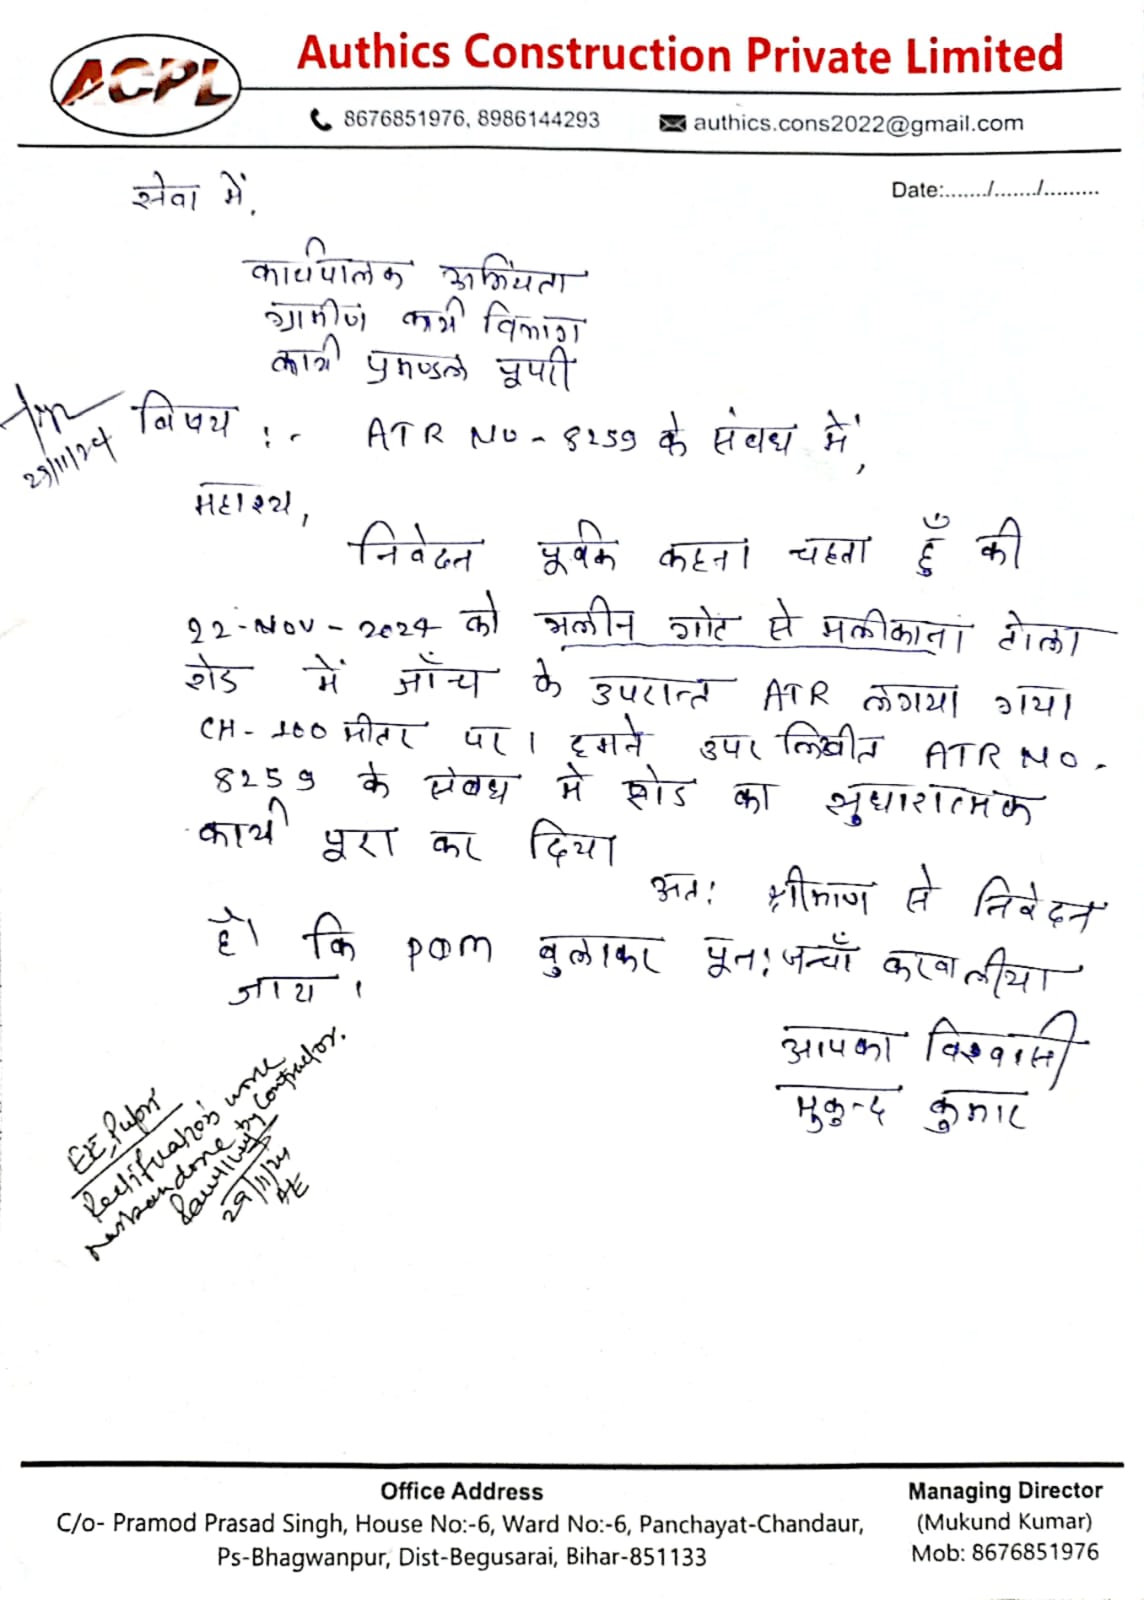 ACPL
Authics Construction Private Limited
8676851976, 8986144293 authics.cons2022@gmail.com
Date:......./......./.........
सेवा में,
कार्यपालक अभियंता
ग्रामीण कार्य विभाग
कार्य प्रमण्डल पूपरी
29/11/24
विषय :- ATR NO - 8259 के संवध में,
महाश्य,
निवेदन पूर्वक कहना चहता हुँ की
22-NOV-2024 को भलीन गोट से मलीकाना टोला
रोड में जाँच के उपरान्त ATR लगया गया
CH-100 मीटर पर। हमने उपर लिखीत ATR NO.
8259 के संवध मे रोड का सुधारात्मक
कार्य पूरा कर दिया
अत: श्रीमाण से निवेदन
है। कि PQM बुलाकर पून: जन्चाँ करवा लीया
जाय।
आपका विश्वासी
मुकुन्द कुमार
EE, Pupri
Rectification work
has been done by Contractor.
29/11/24
AE
Office Address
C/o- Pramod Prasad Singh, House No:-6, Ward No:-6, Panchayat-Chandaur,
Ps-Bhagwanpur, Dist-Begusarai, Bihar-851133
Managing Director
(Mukund Kumar)
Mob: 8676851976